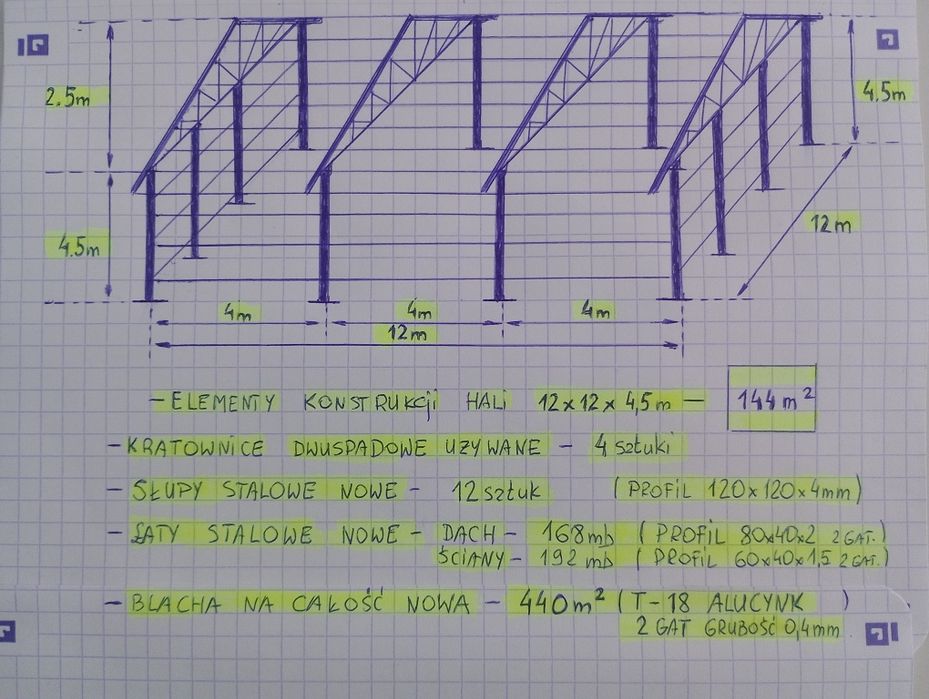 2.5m
4.5m
4.5m
12m
4m
4m
4m
12m
- ELEMENTY KONSTRUKCji HALi 12x12x4,5m - 144m²
- KRATOWNICE DWUSPADOWE UZYWANE - 4 sztuki
- SŁUPY STALOWE NOWE - 12 sztuk (PROFiL 120x120x4mm)
- ŁATY STALOWE NOWE - DACH - 168mb (PROFiL 80x40x2 2GAT.)
ŚCiANY - 192 mb (PROFiL 60x40x1,5 2GAT.)
- BLACHA NA CAŁOŚĆ NOWA - 440m² (T-18 ALUCYNK )
2 GAT GRUBOŚĆ 0,4mm